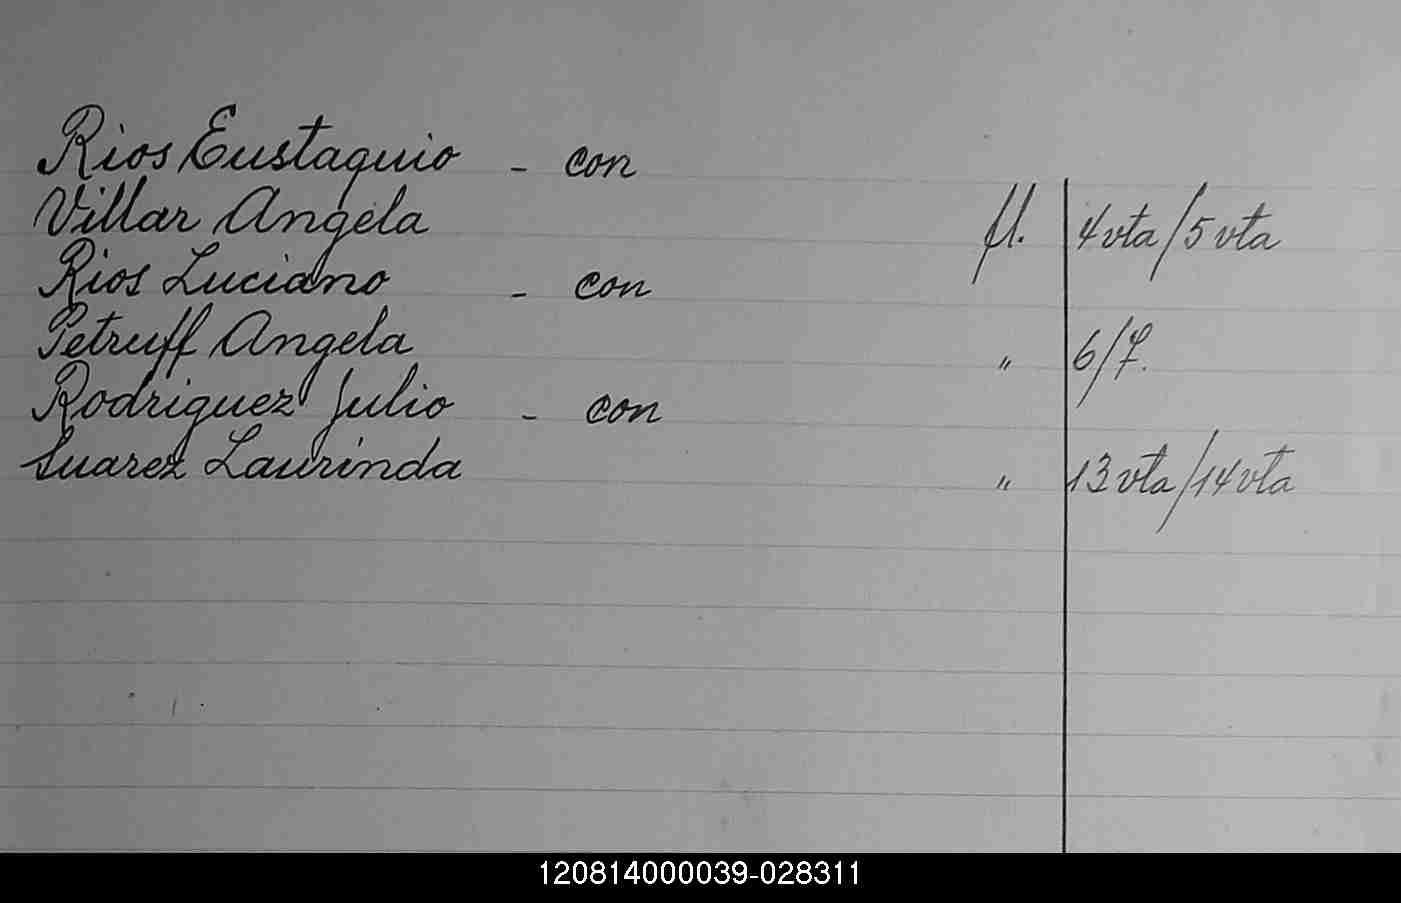 Rios Eustaquio - con
Villar Angela fl. 4 vta/5 vta
Rios Luciano - con
Petruff Angela " 6/7.
Rodriguez Julio - con
Suarez Laurinda " 13 vta/14 vta
120814000039-028311